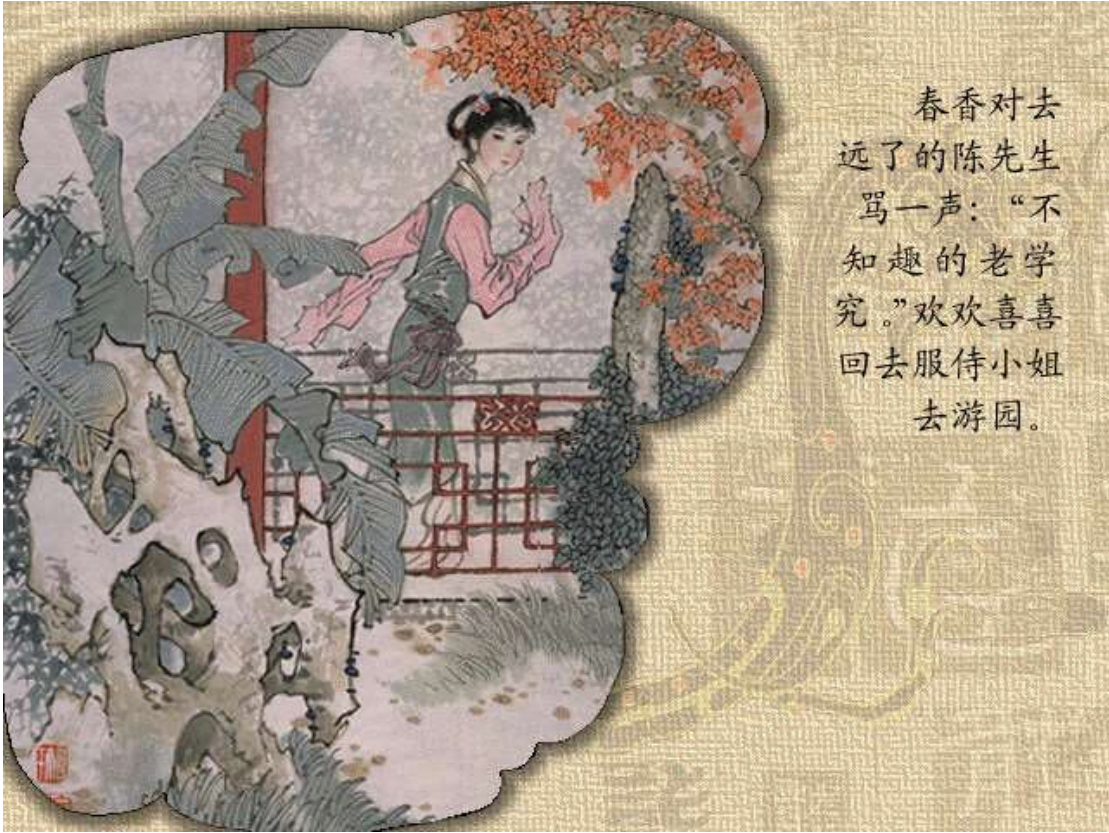 春香对去
远了的陈先生
骂一声：“不
知趣的老学
究。”欢欢喜喜
回去服侍小姐
去游园。